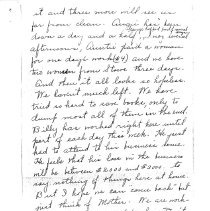 it and three more will see us
far from clean. Angie has been
down a day and a half, and
afternoon, Auntie paid a woman
for one day's work ($4) and we have
two women from Stowe three days.
And then it all looks so hopeless.
We haven't much left. We have
tried so hard to save books, only to
dump most all of them in the end.
Billy has worked right here until
part of each day this week. He just
had to attend to his business some.
He feels that his loss in the business
will be between $2000 and $3000, to
say nothing of things here at home.
But I hope we can come back but
just think of Mother. We are work-